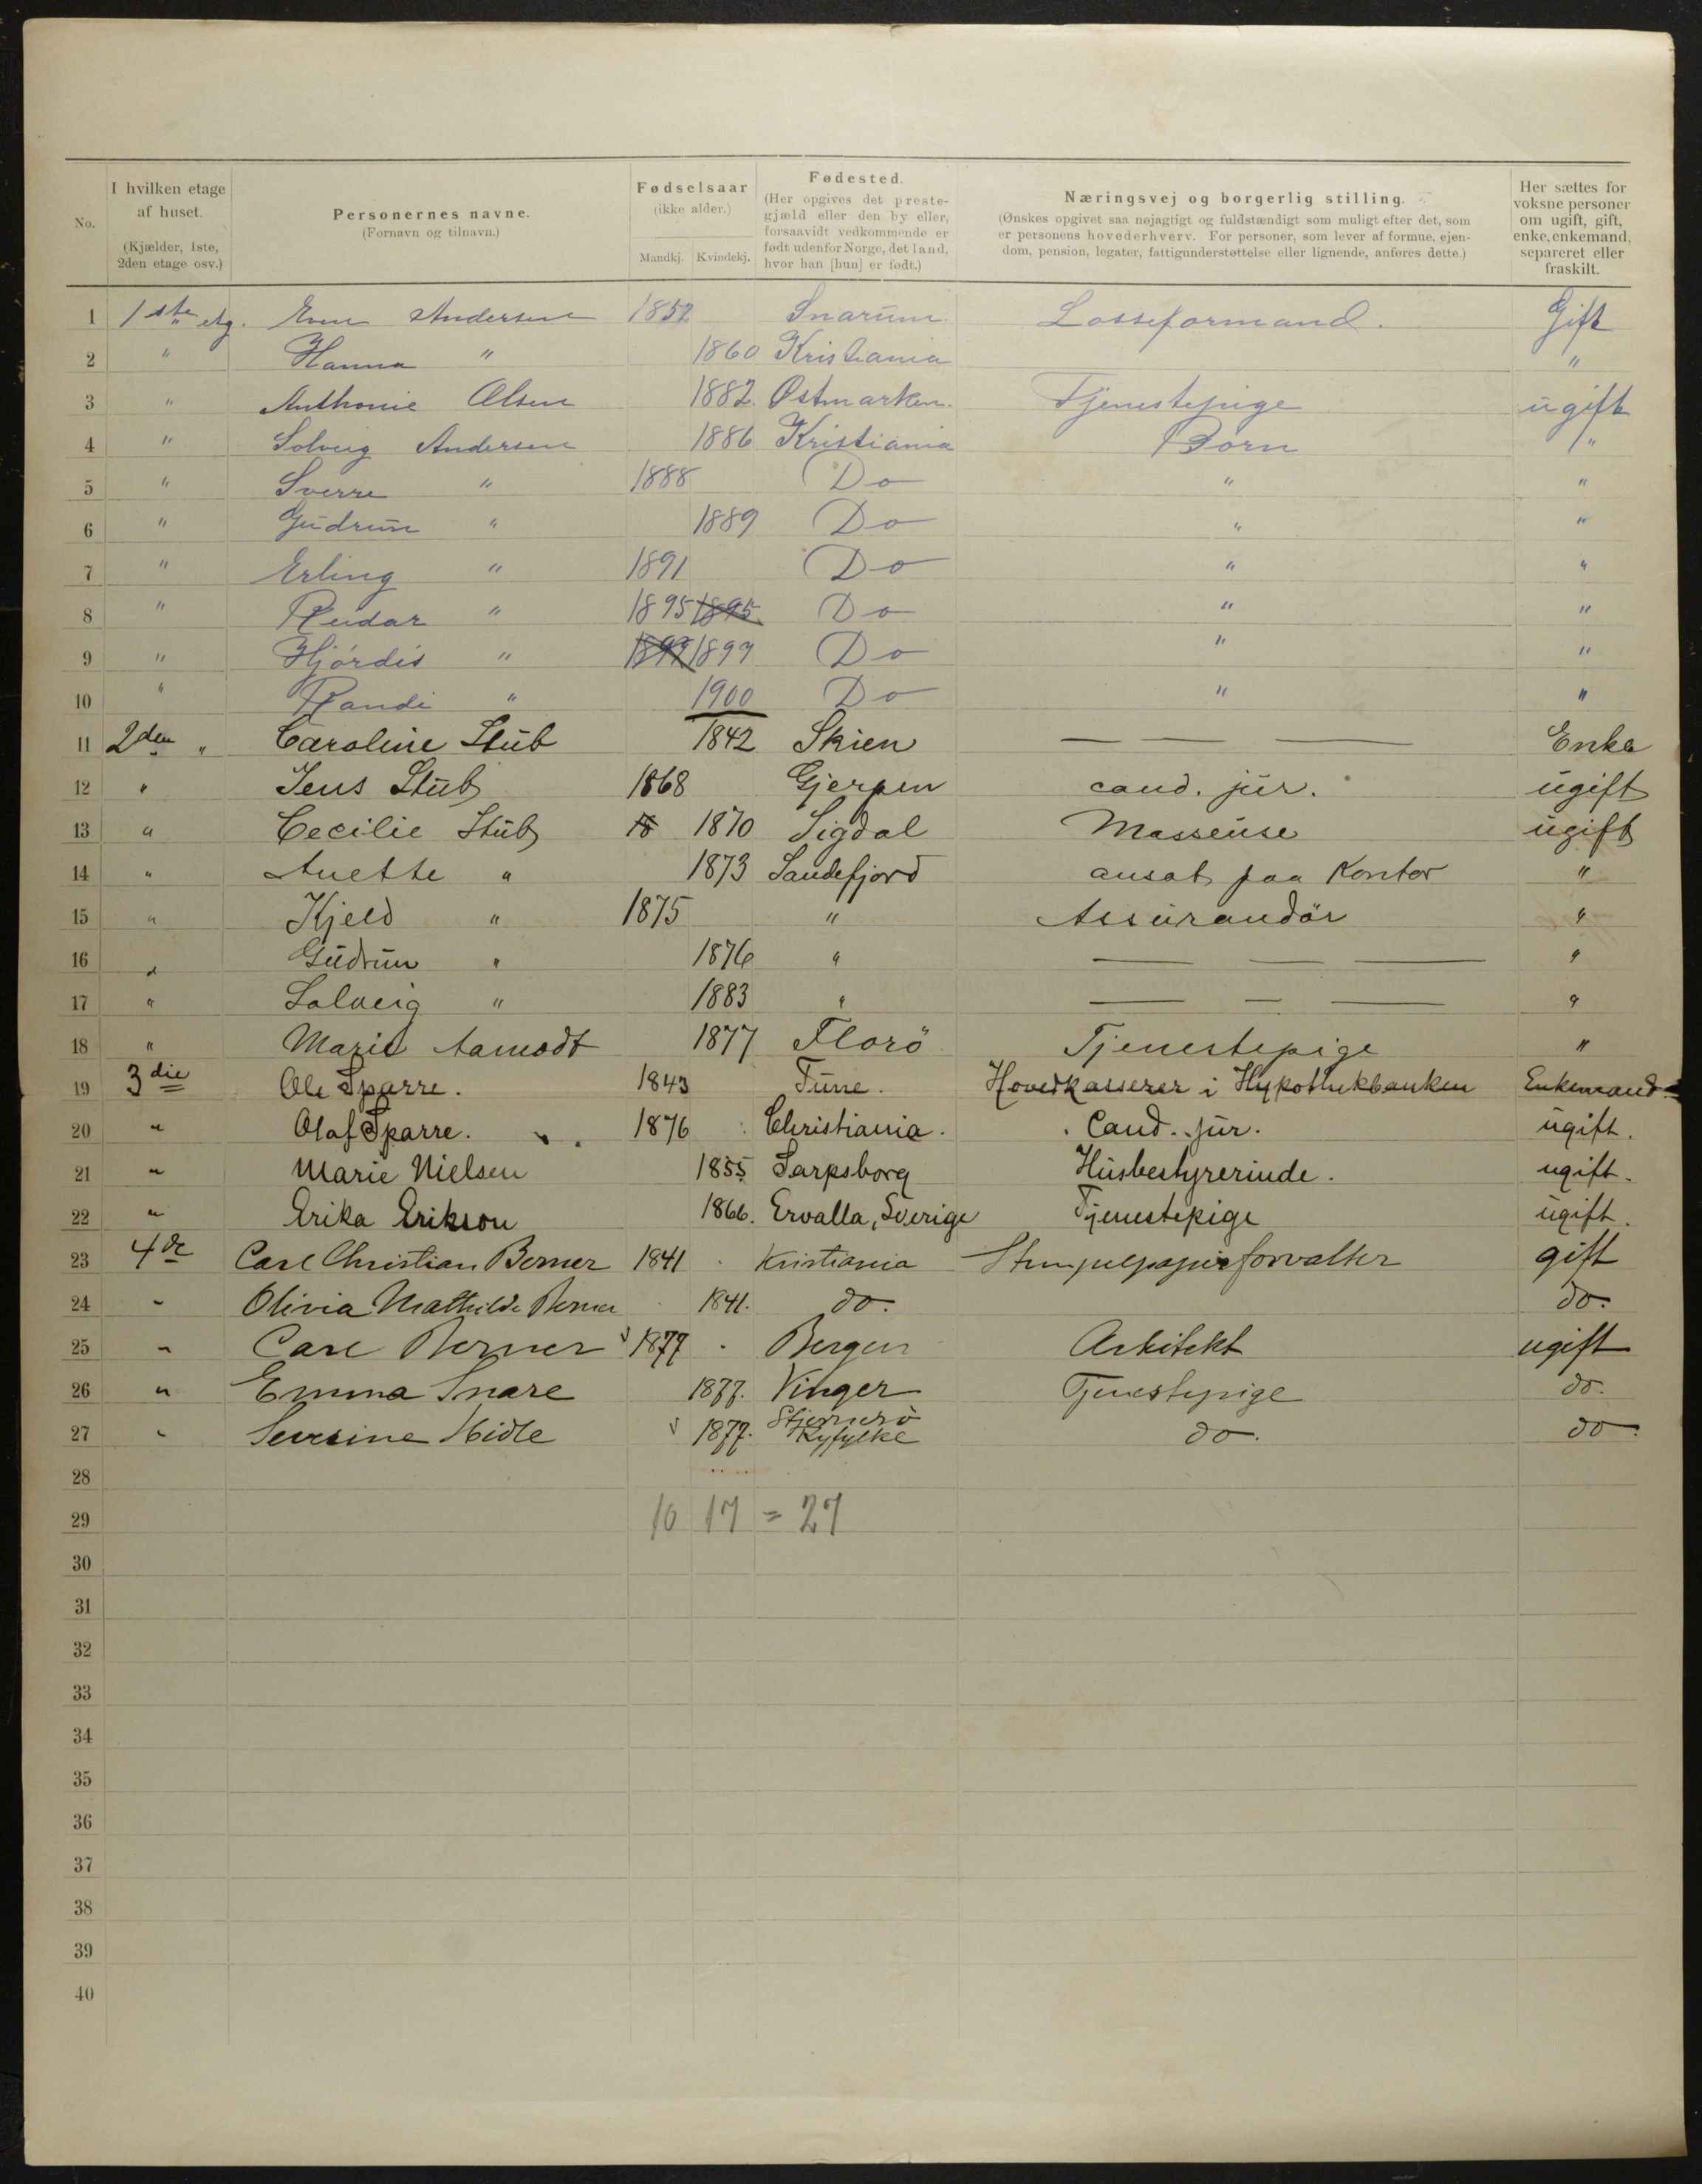 No.
I hvilken etage af huset. (Kjælder, 1ste, 2den etage osv.)
Personernes navne. (Fornavn og tilnavn.)
Fødselsaar (ikke alder.) Mandkj. Kvindekj.
Fødested. (Her opgives det prestegjæld eller den by eller, forsaavidt vedkommende er født udenfor Norge, det land, hvor han [hun] er født.)
Næringsvej og borgerlig stilling. (Ønskes opgivet saa nøjagtigt og fuldstændigt som muligt efter det, som er personens hovederhverv. For personer, som lever af formue, ejendom, pension, legater, fattigunderstøttelse eller lignende, anføres dette.)
Her sættes for voksne personer om ugift, gift, enke, enkemand, separeret eller fraskilt.
1 1ste etg. Even Andersen 1852 Snarum. Losseformand. Gift
2 " Hanna " 1860 Kristiania "
3 " Anthonie Olsen 1882. Østmarken. Tjenestepige ugift
4 " Solveig Andersen 1886 Kristiania Børn "
5 " Sverre " 1888 Do " "
6 " Gudrun " 1889 Do " "
7 " Erling " 1891 Do " "
8 " Reidar " 1895 1895 Do " "
9 " Hjördis " 1899 1899 Do " "
10 " Randi " 1900 Do " "
11 2den " Caroline Stub 1842 Skien — — — Enke
12 " Jens Stub 1868 Gjerpen cand. jur. ugift
13 " Cecilie Stub 18 1870 Sigdal Masseuse ugift
14 " Anette " 1873 Sandefjord ansat paa Kontor "
15 " Kjeld " 1875 " Assurandör "
16 " Gudrun " 1876 " — — — "
17 " Solveig " 1883 " — — — "
18 " Marie Aamodt 1877 Florö Tjenestepige "
19 3die Ole Sparre. 1843 Tune. Hovedkasserer i Hypothekbanken Enkemand.
20 " Olaf Sparre. 1876 Christiania. Cand. jur. ugift.
21 " Marie Nielsen 1855 Sarpsborg Husbestyrerinde. ugift.
22 " Erika Erikson 1866. Ervalla, Sverige Tjenestepige ugift.
23 4de Carl Christian Berner 1841 Kristiania Stempelpapirforvalter gift
24 " Olivia Mathilde Berner 1841. do. do.
25 " Carl Berner 1877 Bergen Arkitekt ugift
26 " Emma Snare 1877. Vinger Tjenestepige do.
27 " Severine Hidle 1877. Stjernerö Ryfylke do. do.
28
29 10 17 = 27
30
31
32
33
34
35
36
37
38
39
40